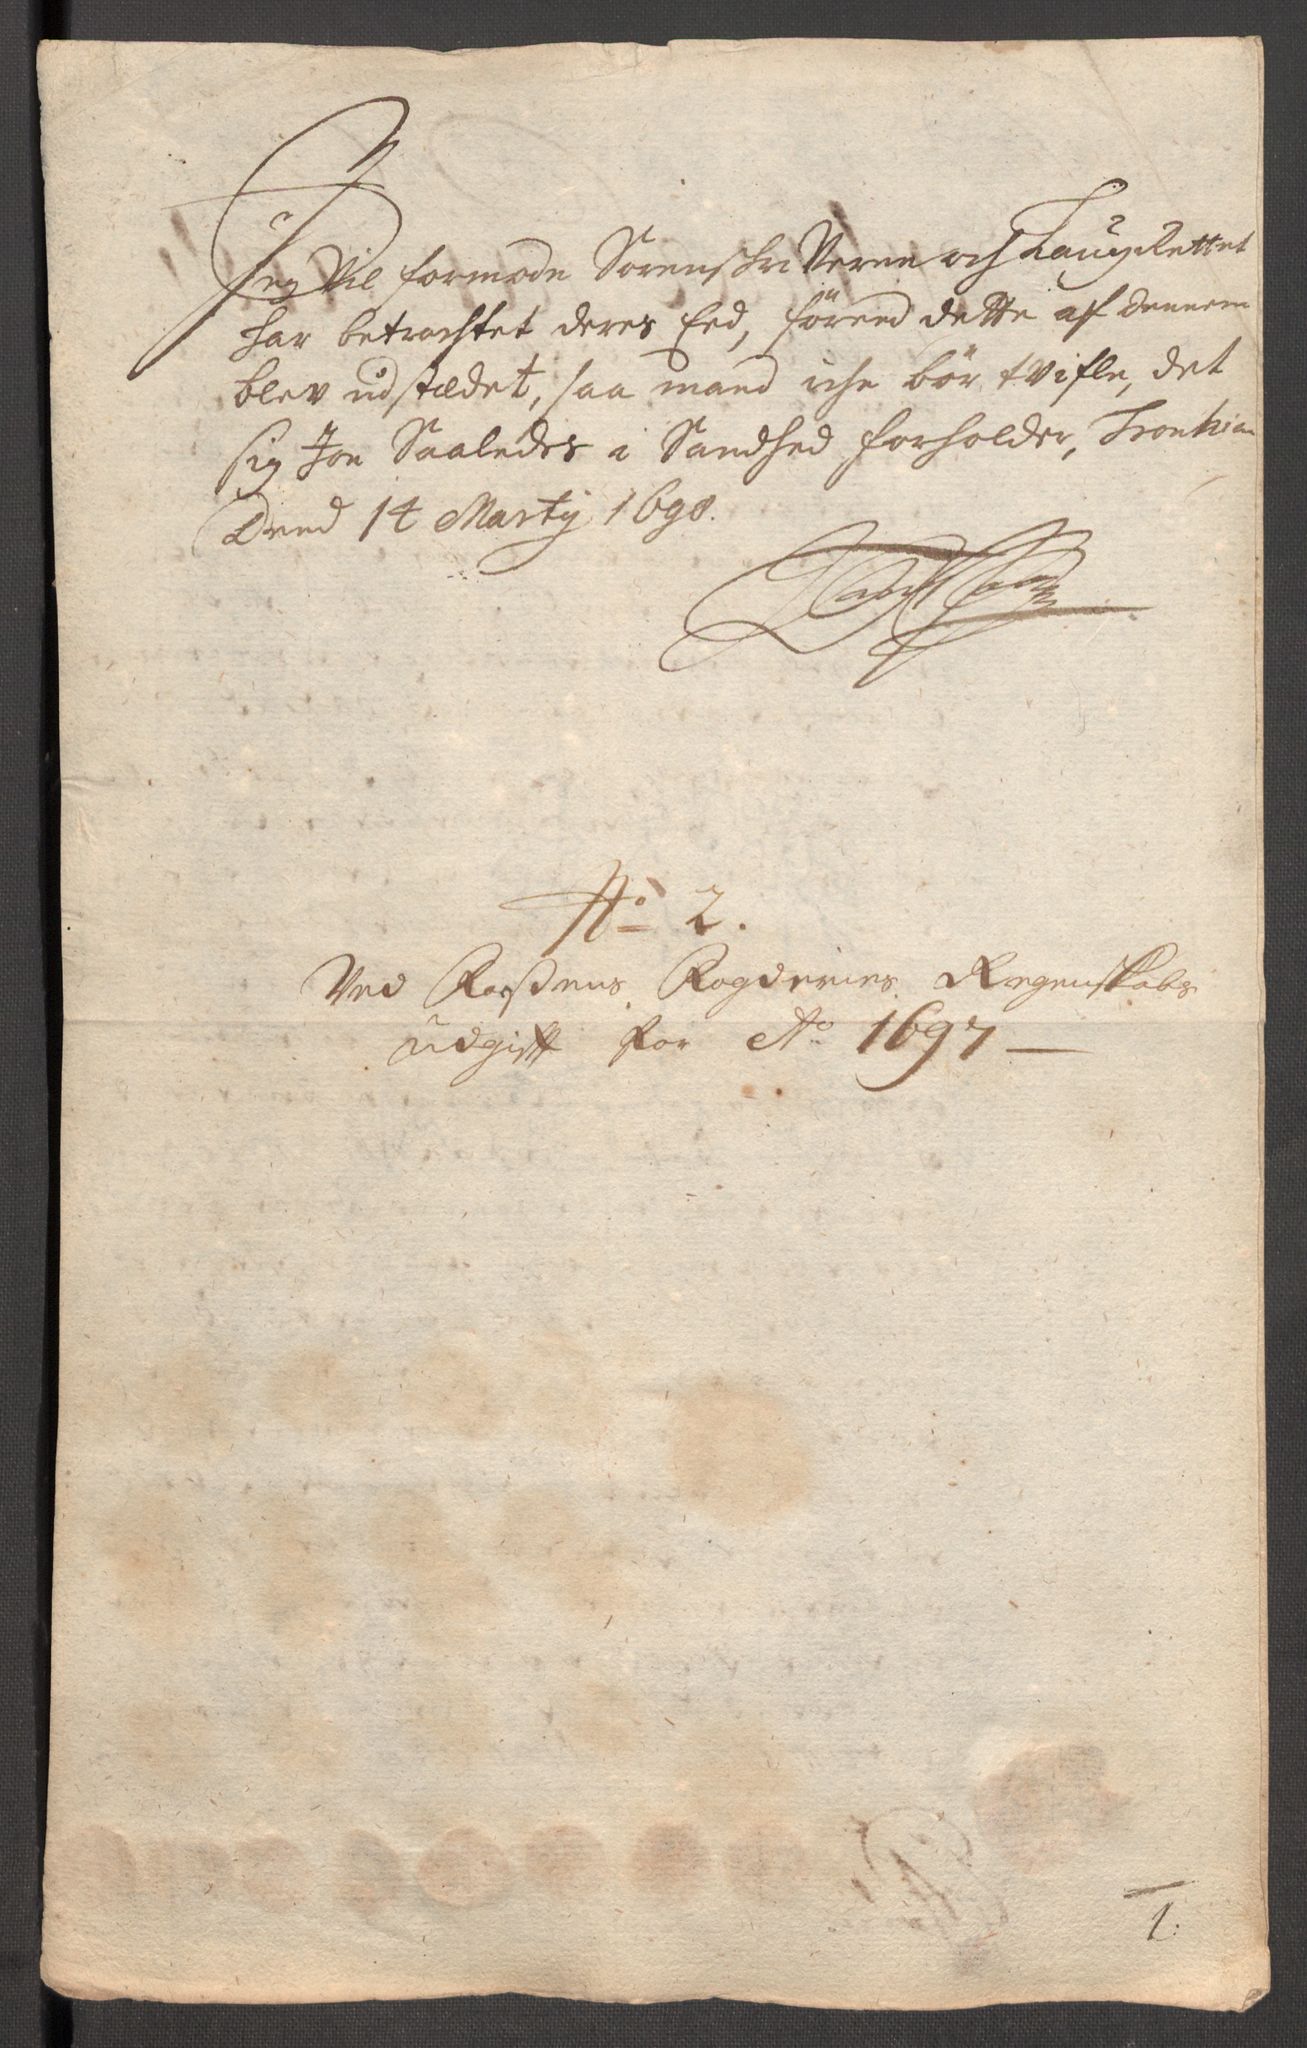 Jeg Vil formode Sorenschriveren och Laugrettet
har betrachtet deres Eed, förend dette af dennem
blev udstædet, saa mand iche bör tvifle, det
sig Jon Saaledes i Sandhed forholder, Tronhiem
Dend 14 Marty 1698.
No 2.
Ved Foßens Fogderies Regenskabs
udgift for Ao 1697
1.